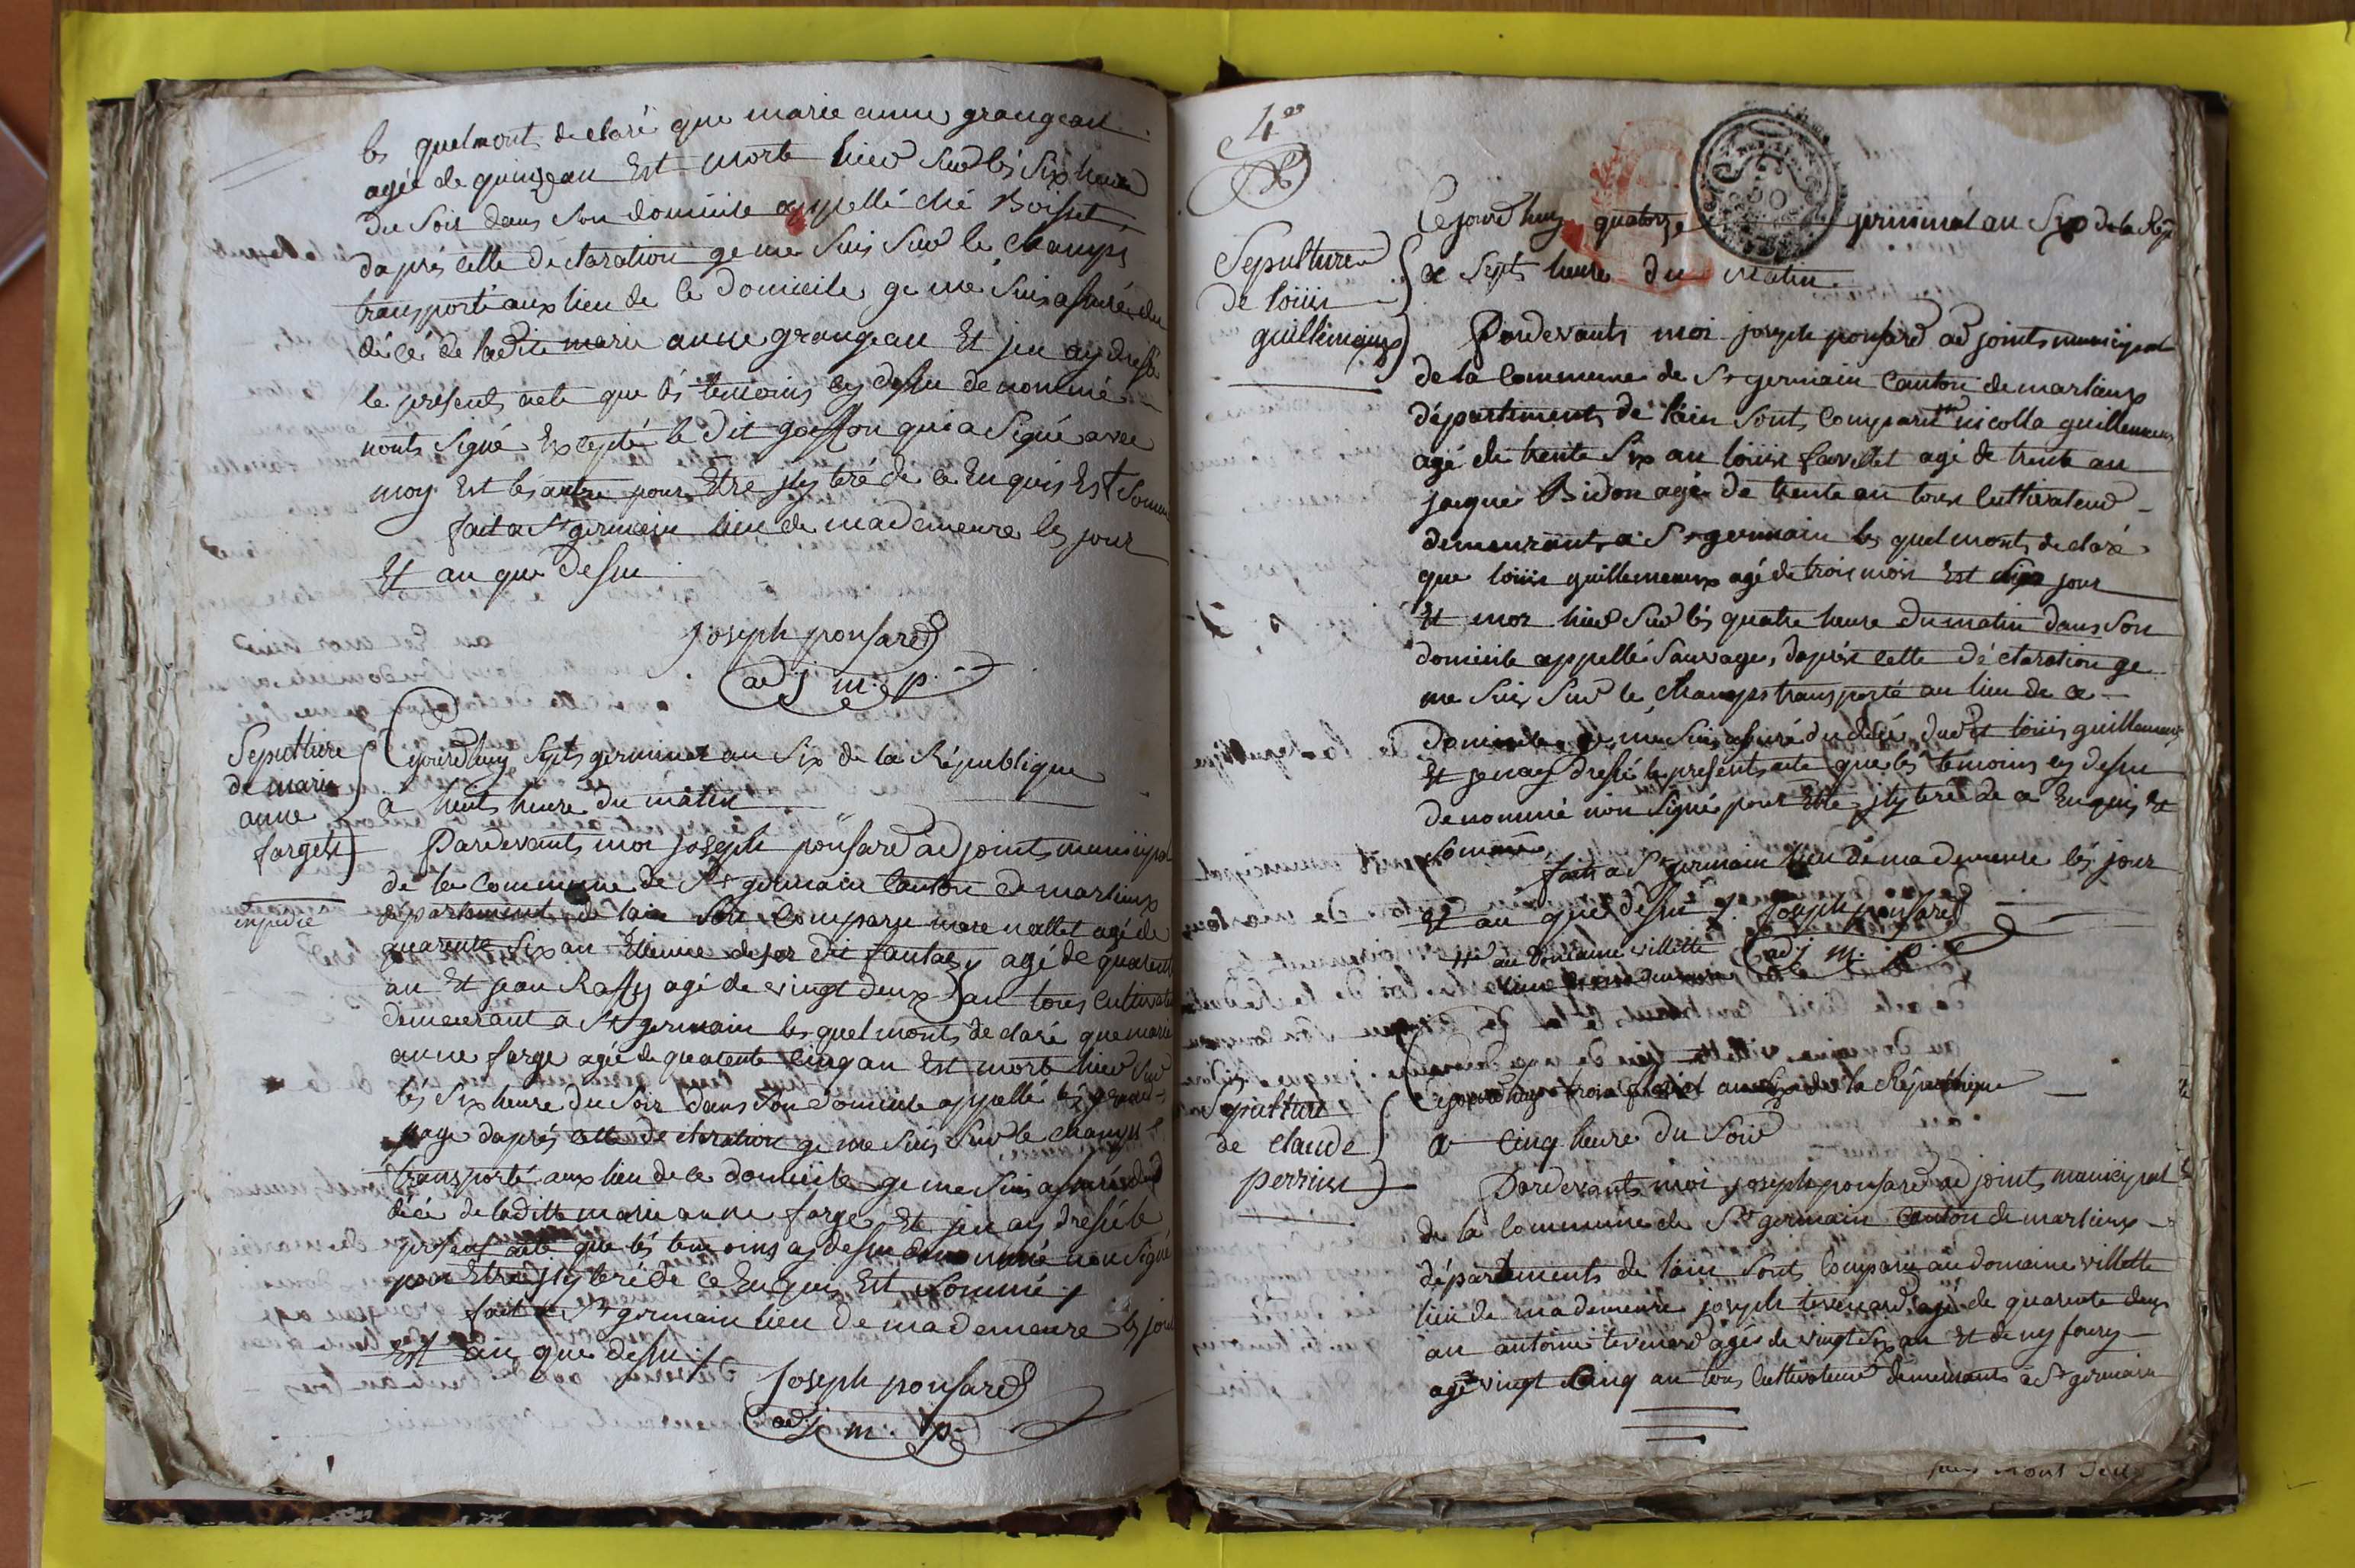 les quel mont declaré que marie anne grangean
agée de quinze an Est morte hier sur lés six heure
du soir dans son domicile appellé ché Boisset
daprés cette déclaration ge me suis sur le champs
transporté aux lieu de ce domicile ge me suis assuré du
décé de ladite marie anne grangean Et jen ay dressé
le présents acte que lés temoins cy dessu denommé
nonts signé Excepté le dit goiffon qui a signé avec
moy Est les autre pour Etre illyteré de ce Enquis Est somm
fait a St germain lieu de ma demeure les jour
Et an que dessu
joseph ponsard
adj m. p.
Sepulture
de marie
anne
farges
expedié
Cejourdhuy septs germinal an six de la République
a huit heure du matin
Pardevants moi joseph ponsard adjoints municipal
de la commune de St germain canton de marlieux
département de lain son comparu marc nallet agé de
quarente six an Etienne desfor dit fantasy agé de quarent
an Et jean Raffy agé de vingt deux an tous cultivate
demeurant a St germain les quel monts declaré que marie
anne farge agée de quarente cinq an Est morte hier sur
lés six heure du soir dans son domicile appellé les
page daprés cette déclaration ge me suis sur le champs
transporté aux lieu de ce domicile ge me suis assuré du
décé de laditte marie anne farge Et jen ay dressé le
présent acte que lés temoins cy dessu denommé non signé
pour Etre illyteré de ce Enquis Est sommé
fait a St germain lieu de ma demeure les jour
Est an que dessu
joseph ponsard
adj m. p.
4
Sepulture
de loüis
guillemeaux
Cejourdhuy quatorze germinal an Six de la Rép
a septs heure du matin
Pardevants moi joseph ponsard adjoints municipal
de la commune de St germain canton de marlieux
départiments de lain sonts comparu nicolla guillemeaux
agé de trente six an loüis favillet agé de trente an
jacque Bidon agé de trente an tous cultivateur
demeurants a St germain les quel monts declaré
que loüis guillemeaux agé de trois mois Est jour
Et mor hier sur lés quatre heure du matin dans son
domicile appellé sauvage, daprés cette déclaration ge
me suis sur le champs transporté au lieu de ce
domicile ge me suis assuré du décé dudit loüis guillemeaux
Et jen ay dressé le présents acte que lés temoins cy dessu
denommé non signé pour Etre illyteré de ce Enquis Et
sommé
faits a St germain lieu de ma demeure lés jour
Et an que dessu joseph ponsard
au domaine villette adj m. p.
lieu de ma demeure
Sepulture
de claude
perrin
Cejourdhuy trois floréal an six de la République
a cinq heure du soir
Pardevants moi joseph ponsard adjoints municipal
de la commune de St germain canton de marlieux
départements de lain sonts comparu au domaine villette
lieu de ma demeure joseph tevenard agé de quarente deux
an antoine tevenard agé de vingt six an Et deny foury
agé vingt cinq an tous cultivateur demeurants a St germain